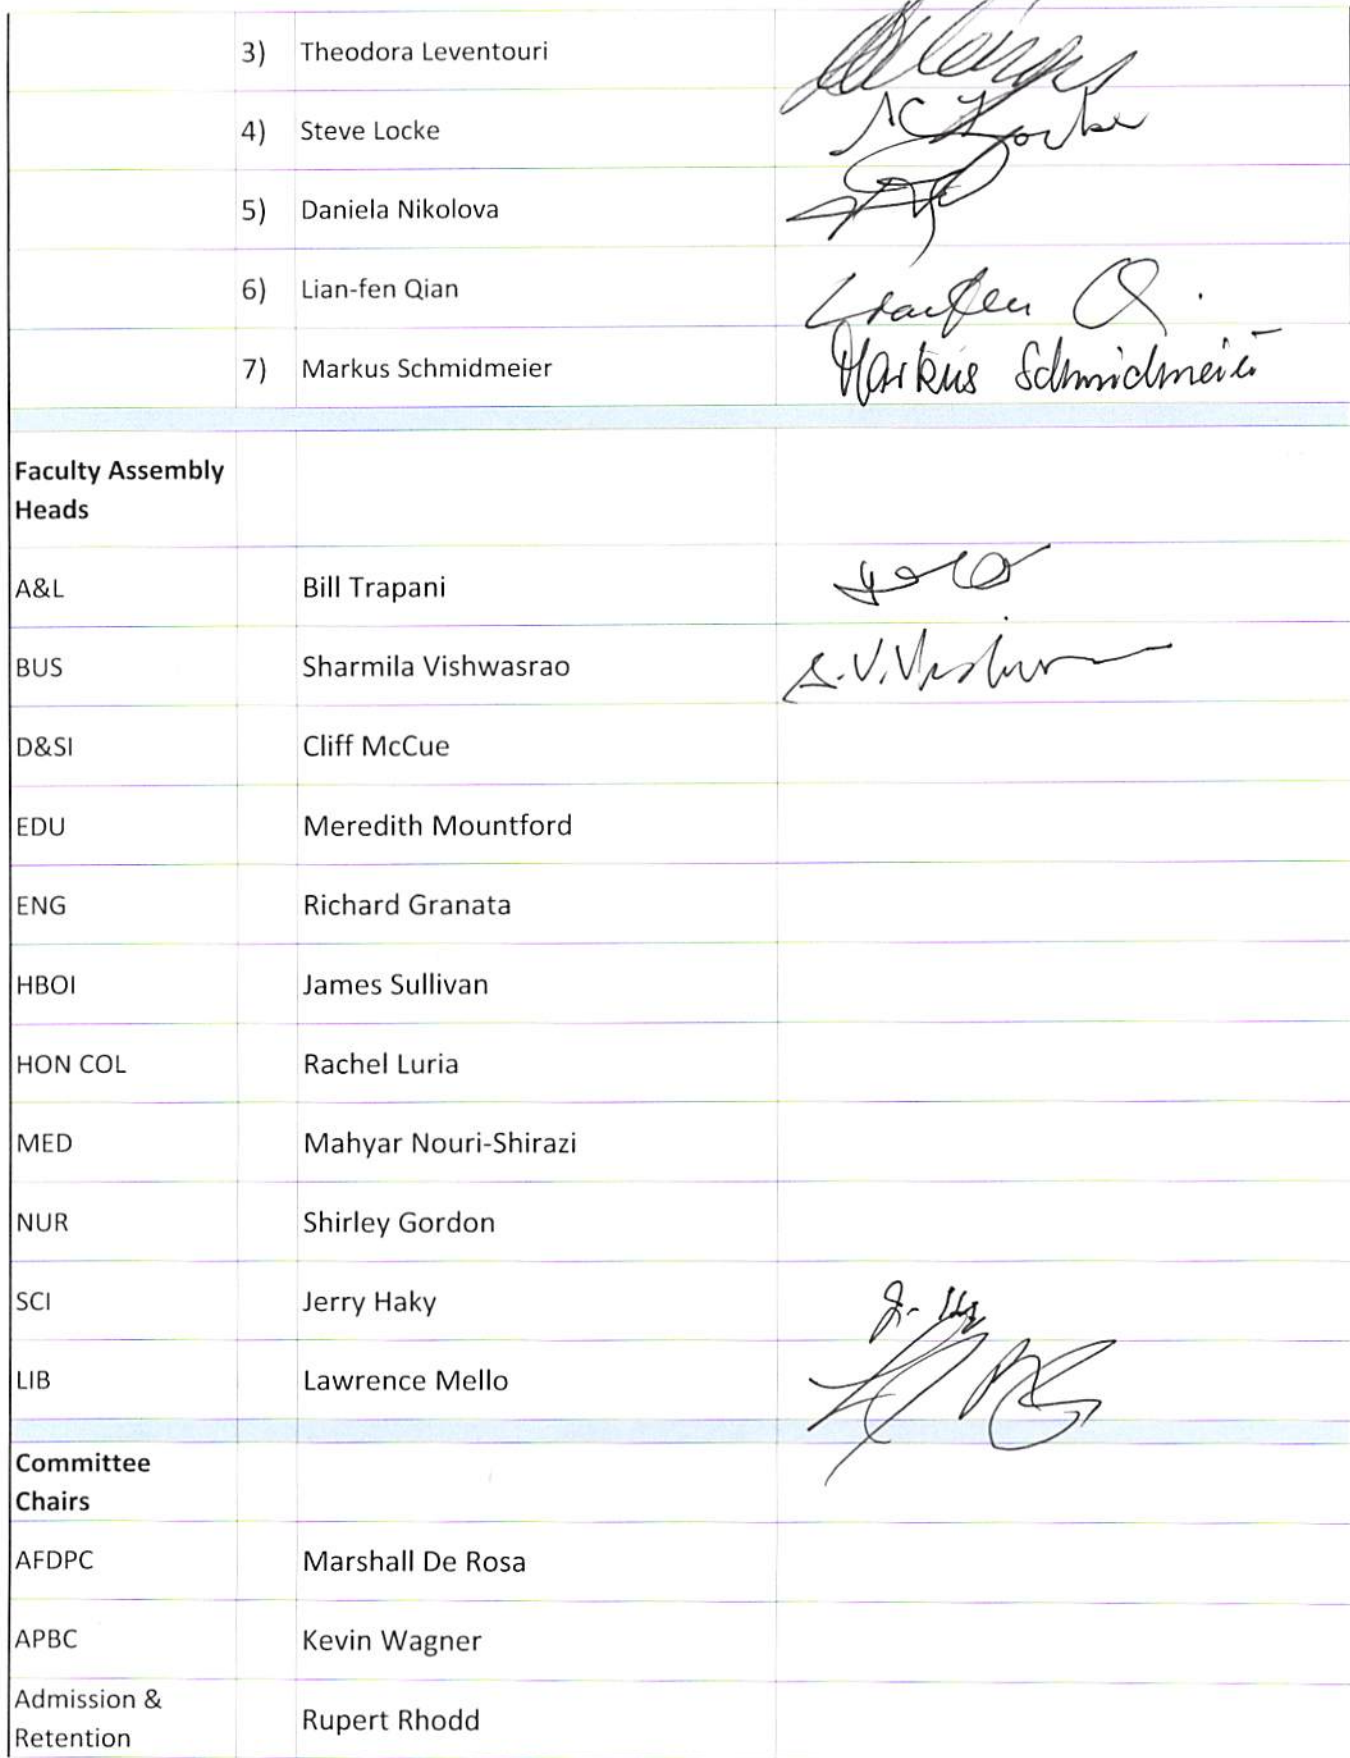 3) Theodora Leventouri
4) Steve Locke
5) Daniela Nikolova
6) Lian-fen Qian
7) Markus Schmidmeier Markus Schmidmeier
Faculty Assembly
Heads
A&L Bill Trapani
BUS Sharmila Vishwasrao
D&SI Cliff McCue
EDU Meredith Mountford
ENG Richard Granata
HBOI James Sullivan
HON COL Rachel Luria
MED Mahyar Nouri-Shirazi
NUR Shirley Gordon
SCI Jerry Haky
LIB Lawrence Mello
Committee
Chairs
AFDPC Marshall De Rosa
APBC Kevin Wagner
Admission &
Retention Rupert Rhodd